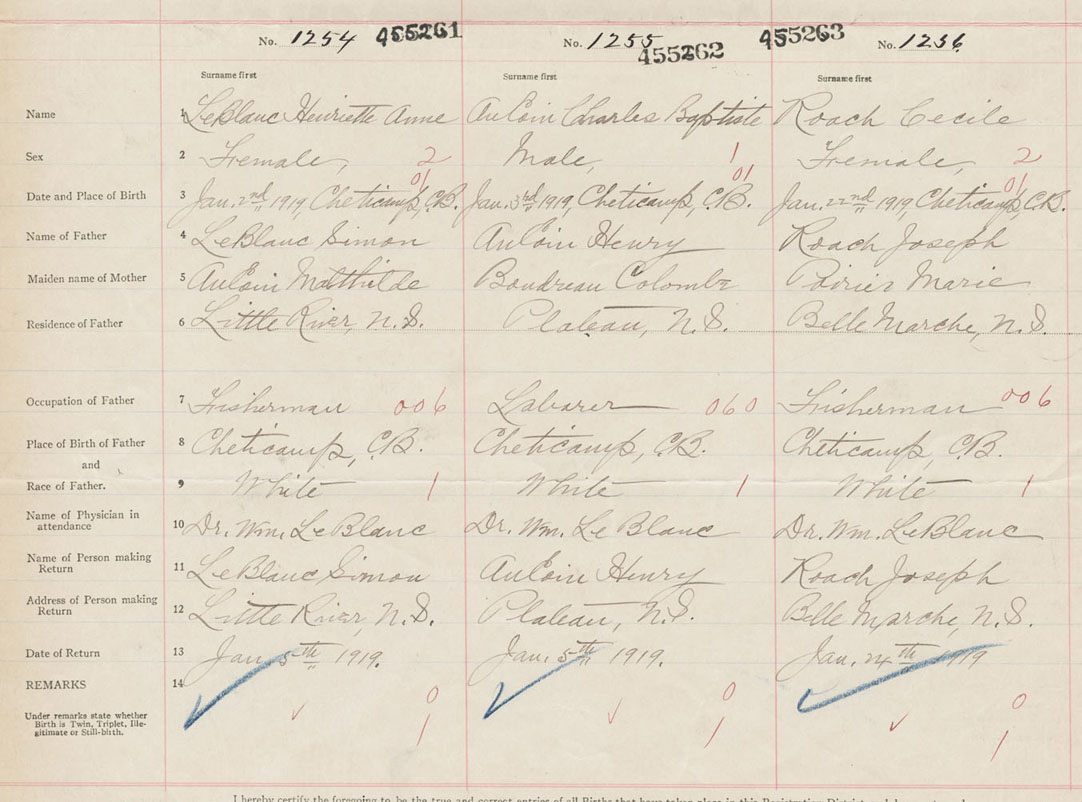 No. 1254 455261 No. 1255 455262 455263 No. 1256
Surname first Surname first Surname first
Name 1 LeBlanc Henriette Anne AuCoin Charles Baptiste Roach Cecile
Sex 2 Female, 2 Male, 1 Female, 2
01 01 01
Date and Place of Birth 3 Jan. 2nd 1919, Cheticamp, C.B. Jan. 3rd 1919, Cheticamp, C.B. Jan. 22nd 1919, Cheticamp, C.B.
Name of Father 4 LeBlanc Simon AuCoin Henry Roach Joseph
Maiden name of Mother 5 AuCoin Mathilde Boudreau Colombe Poirier Marie
Residence of Father 6 Little River, N.S. Plateau, N.S. Belle Marche, N.S.
Occupation of Father 7 Fisherman 006 Laborer 060 Fisherman 006
Place of Birth of Father 8 Cheticamp, C.B. Cheticamp, C.B. Cheticamp, C.B.
and
Race of Father. 9 White 1 White 1 White 1
Name of Physician in
attendance 10 Dr. Wm. LeBlanc Dr. Wm. LeBlanc Dr. Wm. LeBlanc
Name of Person making
Return 11 LeBlanc Simon AuCoin Henry Roach Joseph
Address of Person making
Return 12 Little River, N.S. Plateau, N.S. Belle Marche, N.S.
Date of Return 13 Jan. 5th 1919. Jan. 5th 1919. Jan. 24th 1919
REMARKS 14
0 0 0
Under remarks state whether
Birth is Twin, Triplet, Ille-
gitimate or Still-birth. 1 1 1
I hereby certify the foregoing to be the true and correct entries of all Births that have taken place in this Registration District